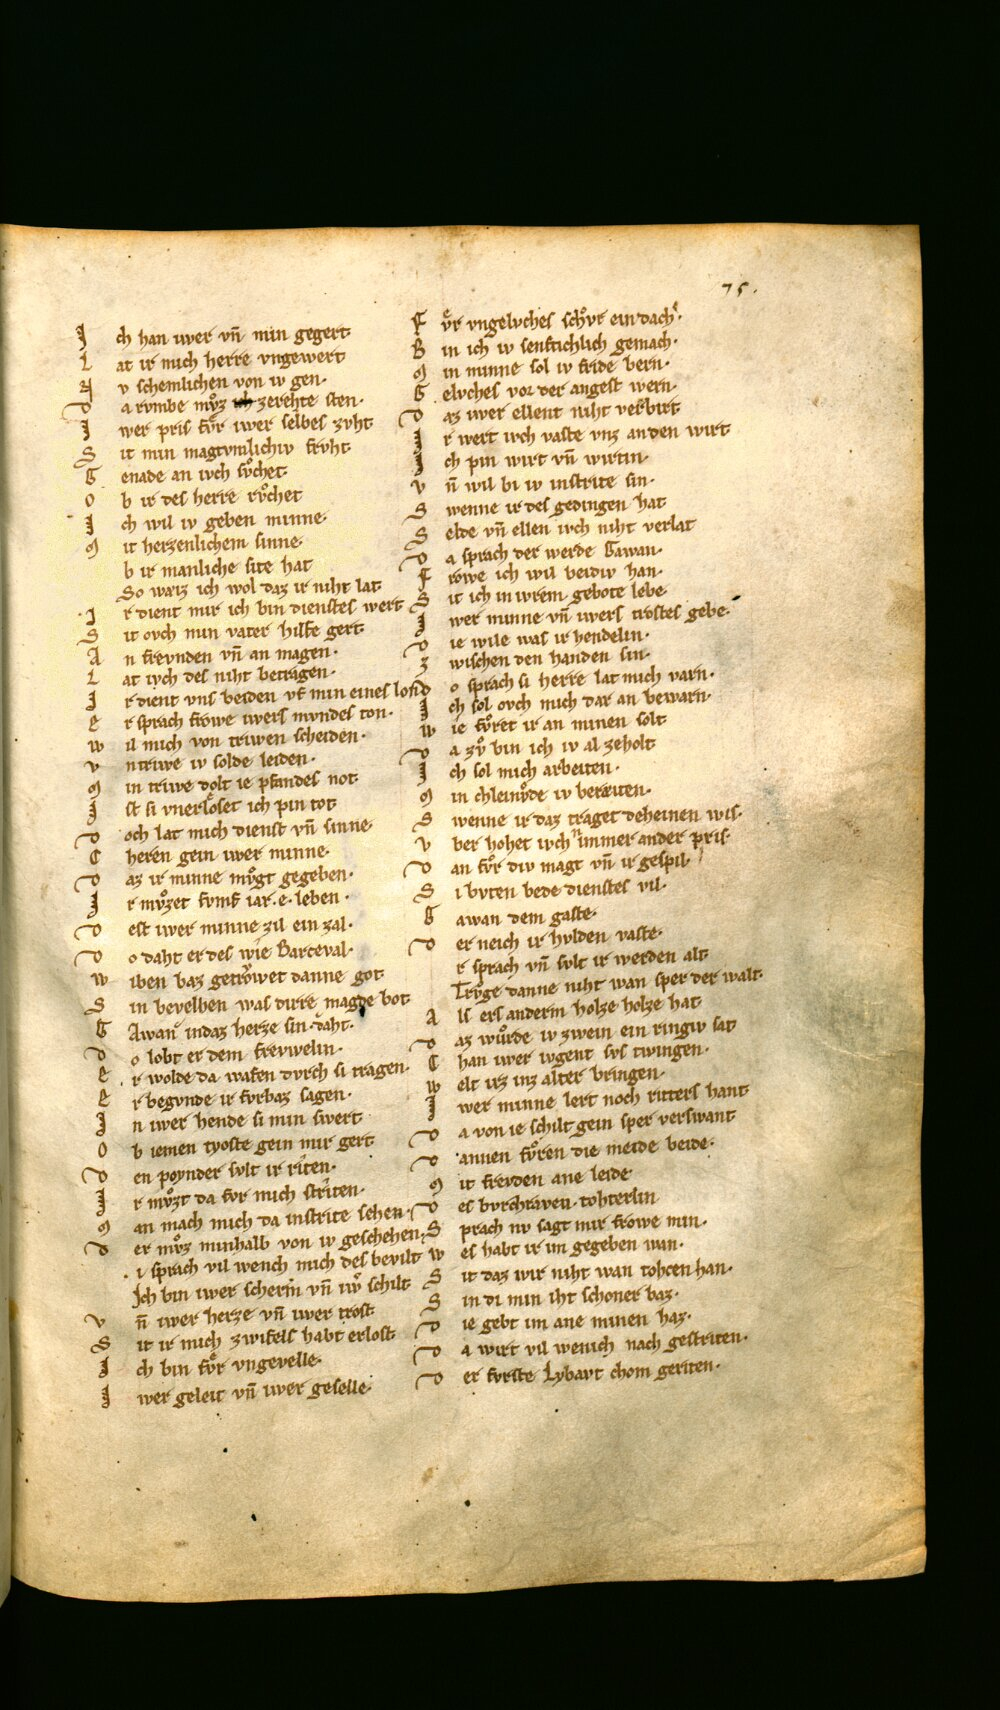 75.
J ch han iwer vn̄ min gegert
L at ir mich herre vngewert
N v schemlichen von iw gen·
D a rvmbe mvͦz ich zerehte sten·
J wer pris fvͤr iwer selbes zvht
S it min magtvmlichiv frvht
G enade an ivch svͦchet·
O b ir des herre rvͦchet
J ch wil iw geben minne·
M it herzenlichem sinne·
b ir manliche site hat
So waiz ich wol daz ir niht lat
J r dient mir ich bin dienstes wert
S it ovch min vater hilfe gert
A n frevnden vn̄ an magen·
L at ivch des niht betragen·
J r dient vns beiden vf min eines lon
E r sprach frowe iwers mvndes ton·
W il mich von triwen scheiden·
V ntriwe iw solde leiden·
M in triwe dolt ie pfandes not
J st si vnerloͤset ich pin tot
D och lat mich dienst vn̄ sinne·
C heren gein iwer minne·
D az ir minne mvͦgt gegeben·
J r mvͦzet fvmf iar·e·leben·
D est iwer minne zil ein zal·
D o daht er des wie Parceval·
W iben baz getrŵet danne got
S in bevelhen was dirre magde bot
G Awan indaz herze sin·daht·
D o lobt er dem frevwelin·
E r wolde da wafen dvrch si tragen·
E r begvnde ir fvrbaz sagen·
J n iwer hende si min swert
O b iemen tyoste gein mir gert
D en poynder svlt ir riten·
J r mvͦzt da fvr mich striten·
M an mach mich da instrite sehen·
D er mvͦz minhalb von iw geschehen·
i sprach vil wench mich des bevilt
Jch bin iwer scherm vn̄ iwͦ schilt
V n̄ iwer herze vn̄ iwer trost
S it ir mich zwifels habt erlost
J ch bin fvͤr vngevelle·
J wer geleit vn̄ iwer geselle·
F vͤr vngelvches schvͦr ein dach·
B in ich iw senftichlich gemach·
M in minne sol iw fride bern·
G elvches vor der angest wern·
D az iwer ellent niht verbirt
J r wert ivch vaste vnz anden wirt
J ch pin wirt vn̄ wirtin·
V n̄ wil bi iw instrite sin·
S wenne ir des gedingen hat
S elde vn̄ ellen ivch niht verlat
D a sprach der werde Gawan·
F rowe ich wil beidiv han·
S it ich in iwrem gebote lebe
J wer minne vn̄ iwers trostes gebe·
D ie wile was ir hendelin·
Z wischen den handen sin·
D o sprach si herre lat mich varn·
J ch sol ovch mich dar an bewarn·
W ie fvͦret ir an minen solt
D a zvͦ bin ich iw al zeholt
J ch sol mich arbeiten·
M in chleinvͦde iw bereiten·
S wenne ir daz traget deheinen wis·
V ber hohet ivch nimmer ander pris·
D an fvͦr div magt vn̄ ir gespil·
S i bvten bede dienstes vil·
G awan dem gaste·
D er neich ir hvlden vaste·
r sprach vn̄ svlt ir werden alt
Trvͦge danne niht wan sper der walt·
A ls ers anderm holze holze hat
D az wvͦrde iw zwein ein ringiv sat
C han iwer ivgent svs twingen·
W elt irz inz alter bringen·
J wer minne lert noch ritters hant
D a von ie schilt gein sper verswant
D annen fvͦren die meide beide·
M it frevden ane leide·
D es bvrchraven tohterlin
S prach nv sagt mir frowe min·
W es habt ir im gegeben wan·
S it daz wir niht wan tohcen han·
S in di min iht schoner baz·
D ie gebt im ane minen haz·
D a wirt vil wenich nach gestriten·
D er fvrste Lybavt chom geriten·